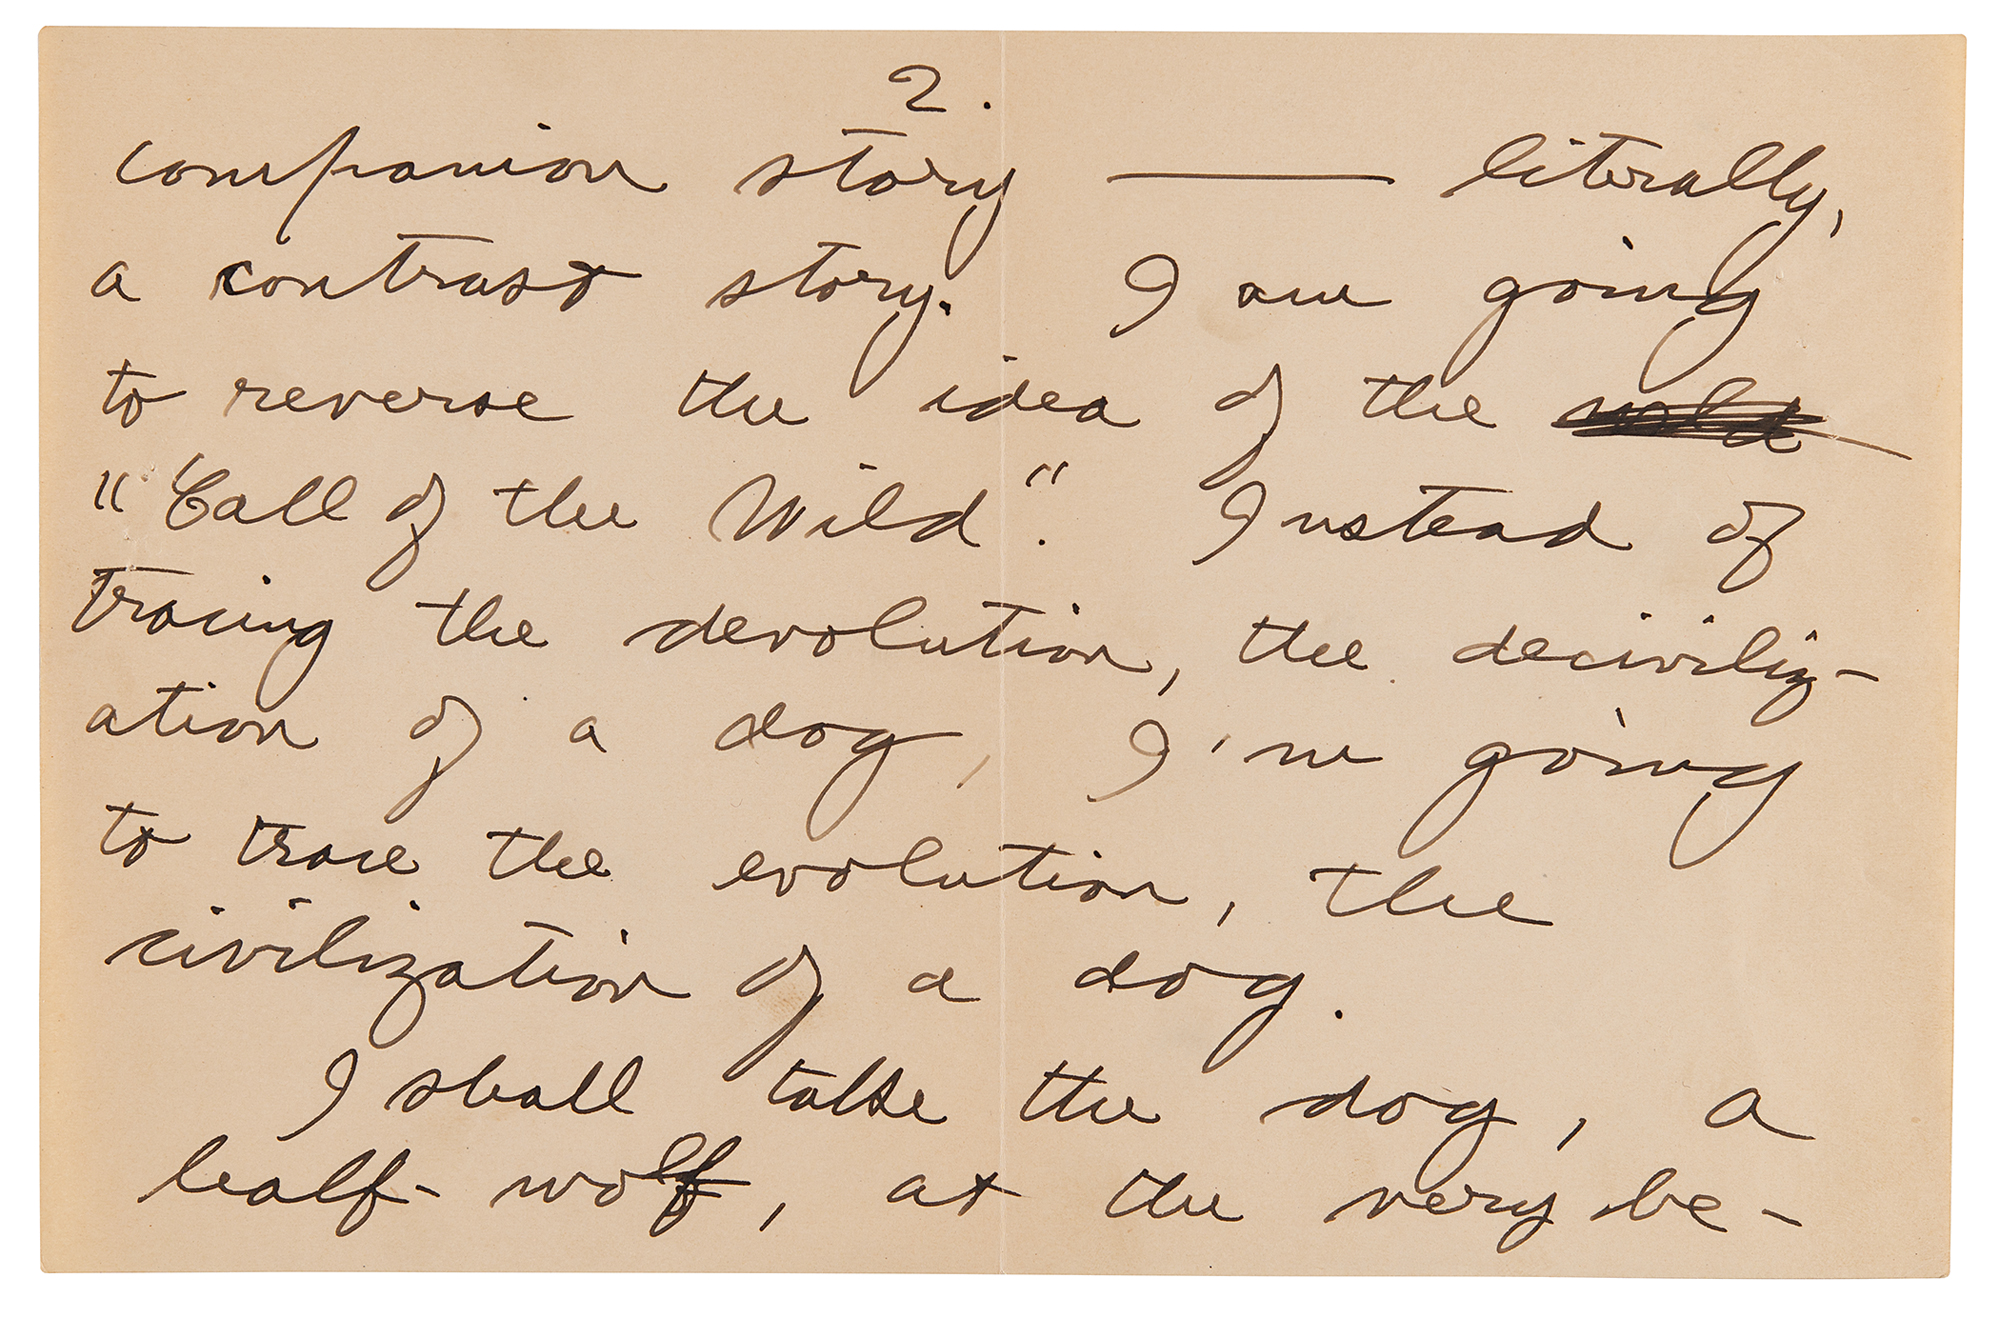 2.
companion story —— literally,
a contrast story. I am going
to reverse the idea of the
"Call of the Wild". Instead of
tracing the devolution, the deciviliz-
ation of a dog, I'm going
to trace the evolution, the
civilization of a dog.
I shall take the dog, a
half-wolf, at the very be-